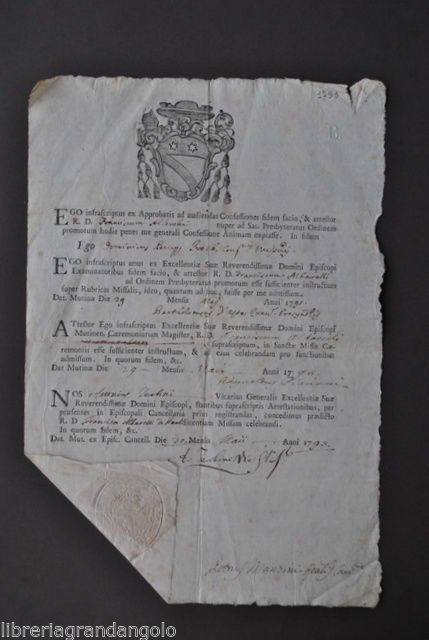 1793
B
EGO infrascriptus ex Approbatis ad audiendas Confessiones fidem facio, & attestor
R. D. Franciscum Albarelli nuper ad Sac. Presbyteratus Ordinem
promotum hodie penes me generali Confessione Animam expiasse. In fidem
Ego Dominicus
EGO infrascriptus unus ex Excellentiæ Suæ Reverendissimæ Domini Episcopi
Examinatoribus fidem facio, & attestor R. D. Franciscum Albarelli
ad Ordinem Presbyteratus promotum esse sufficienter instructum
super Rubricas Missalis, ideo, quantum ad hoc, fuisse per me admissum.
Dat. Mutinæ Die 29 Mensis Maij Anni 1793.
Bartholomeus
ATtestor Ego infrascriptus Excellentiæ Suæ Reverendissimæ Domini Episcopi
Mutinen. Cæremoniarum Magister, R. D. Franciscum Albarelli
suprascriptum, in Sanctæ Missæ Cæ-
remoniis esse sufficienter instructum, & ad eius celebrandam pro functionibus
admissum. In quorum fidem, &c.
Dat. Mutinæ Die 29 Mensis Maii Anni 1793.
NOS Vicarius Generalis Excellentiæ Suæ
Reverendissimæ Domini Episcopi, stantibus suprascriptis Attestationibus, per
præsentes in Episcopali Cancellaria prius registrandas, concedimus prædicto
R. D. Francisco Albarelli licentiam Missam celebrandi.
In quorum fidem, &c.
Dat. Mut. ex Episc. Cancell. Die 30 Mensis Maii Anni 1793.
libreriagrandangolo